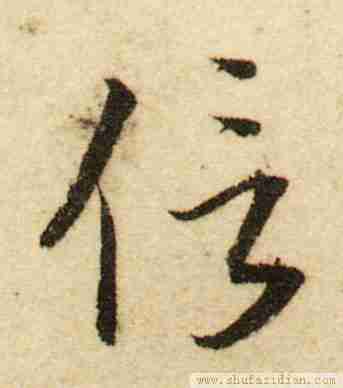 信
www.shufazidian.com